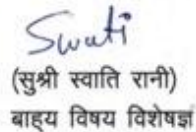 Swati
(सुश्री स्वाति रानी)
बाह्य विषय विशेषज्ञ